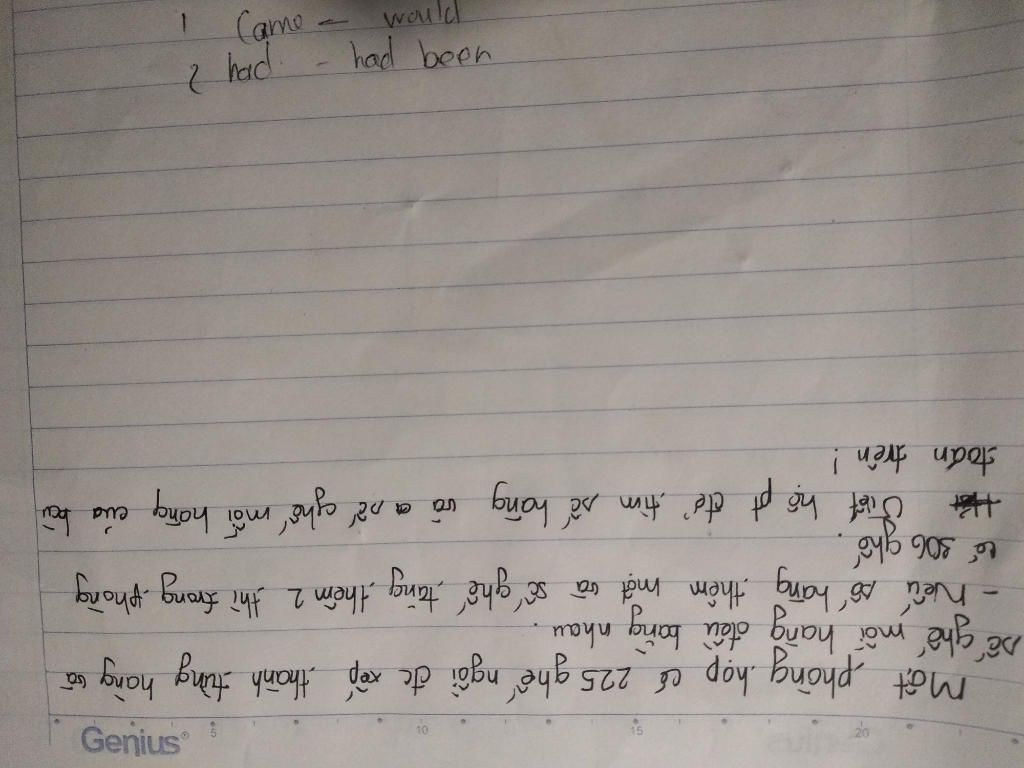 1 Came – would
2 had - had been
Một phòng họp có 225 ghế ngồi đc xếp thành từng hàng và
số ghế mỗi hàng đều bằng nhau.
- Nếu số hàng thêm một và số ghế tăng thêm 2 thì trong phòng
có 306 ghế.
Viết hệ pt để tìm số hàng và số ghế mỗi hàng của bài
toán trên!
Genius®
5 10 15 20